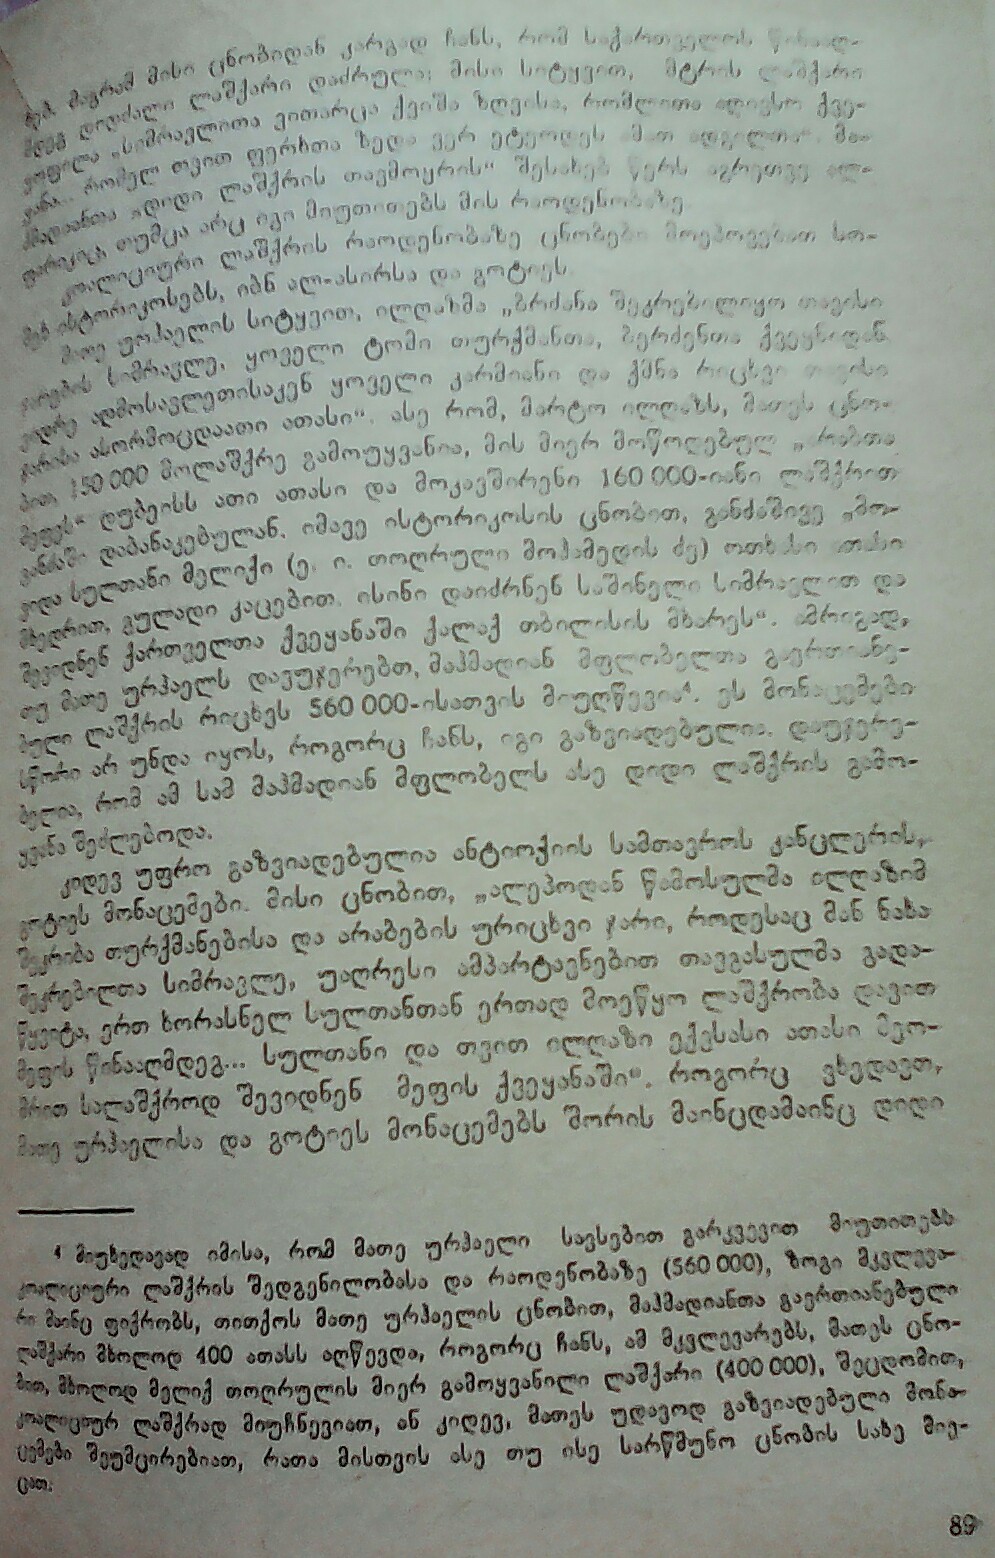 ბს. მაგრამ მისი ცნობიდან კარგად ჩანს, რომ საქართველოს წინააღ-
მდეგ დიდძალი ლაშქარი დაძრულა; მისი სიტყვით, მტრის ლაშქარი
ყოფილა „სიმრავლითა ვითარცა ქვიშა ზღვისა, რომლითა აღივსო ქვე-
ყანა... რომელ თვით ფერხთა ზედა ვერ ეტეოდეს მათ ადგილთა“. მა-
ჰმადიანთა „დიდი ლაშქრის თავმოყრის“ შესახებ წერს აგრეთვე ალ-
ფარიკიც, თუმცა არც იგი მიუთითებს მის რაოდენობაზე.
კოალიციური ლაშქრის რაოდენობაზე ცნობები მოეპოვებათ სო-
მეხ ისტორიკოსებს, იბნ ალ-ასირსა და გოტიეს.
მათე ურჰაელის სიტყვით, ილღაზმა „ბრძანა შეკრებილიყო თავისი
ჯარების სიმრავლე, ყოველი ტომი თურქმანთა, ბერძენთა ქვეყნიდან
ვიდრე აღმოსავლეთისაკენ ყოველი კარმიანი და ქმნა რიცხვი თავისი
ჯარისა ასორმოცდაათი ათასი“. ასე რომ, მარტო ილღაზს, მათეს ცნო-
ბით 150 000 მოლაშქრე გამოუყვანია, მის მიერ მოწოდებულ „არაბთა
მეფეს“ დუბეისს ათი ათასი და მოკავშირენი 160 000-იანი ლაშქრით
განძაში დაბანაკებულან. იმავე ისტორიკოსის ცნობით, განძაშივე „მო-
ვიდა სულთანი მელიქი (ე. ი. თოღრული მოჰამედის ძე) ოთხასი ათასი
მხედრით, გულადი კაცებით. ისინი დაიძრნენ საშინელი სიმრავლით და
შევიდნენ ქართველთა ქვეყანაში ქალაქ თბილისის მხარეს“. ამრიგად,
თუ მათე ურჰაელს დავუჯერებთ, მაჰმადიან მფლობელთა გაერთიანე-
ბული ლაშქრის რიცხვს 560 000-ისათვის მიუღწევია⁴. ეს მონაცემები
სწორი არ უნდა იყოს, როგორც ჩანს, იგი გაზვიადებულია. დაუჯერე-
ბელია, რომ ამ სამ მაჰმადიან მფლობელს ასე დიდი ლაშქრის გამო-
ყვანა შეძლებოდა.
კიდევ უფრო გაზვიადებულია ანტიოქიის სამთავროს კანცლერის,
გოტიეს მონაცემები. მისი ცნობით, „ალეპოდან წამოსულმა ილღაზიმ
შეკრიბა თურქმანებისა და არაბების ურიცხვი ჯარი, როდესაც მან ნახა
შეკრებილთა სიმრავლე, უაღრესი ამპარტავნებით თავგასულმა გადა-
წყვიტა, ერთ ხორასნელ სულთანთან ერთად მოეწყო ლაშქრობა დავით
მეფის წინააღმდეგ... სულთანი და თვით ილღაზი ექვსასი ათასი მეო-
მრით სალაშქროდ შევიდნენ მეფის ქვეყანაში“. როგორც ვხედავთ,
მათე ურჰაელისა და გოტიეს მონაცემებს შორის მაინცდამაინც დიდი
⁴ მიუხედავად იმისა, რომ მათე ურჰაელი სავსებით გარკვევით მიუთითებს
კოალიციური ლაშქრის შედგენილობასა და რაოდენობაზე (560 000), ზოგი მკვლევა-
რი მაინც ფიქრობს, თითქოს მათე ურჰაელის ცნობით, მაჰმადიანთა გაერთიანებული
ლაშქარი მხოლოდ 400 ათასს აღწევდა, როგორც ჩანს, ამ მკვლევარებს, მათეს ცნო-
ბით, მხოლოდ მელიქ თოღრულის მიერ გამოყვანილი ლაშქარი (400 000), შეცდომით,
კოალიციურ ლაშქრად მიუჩნევიათ, ან კიდევ, მათეს უდავოდ გაზვიადებული მონა-
ცემები შეუმცირებიათ, რათა მისთვის ასე თუ ისე სარწმუნო ცნობის სახე მიე-
ცათ.
89